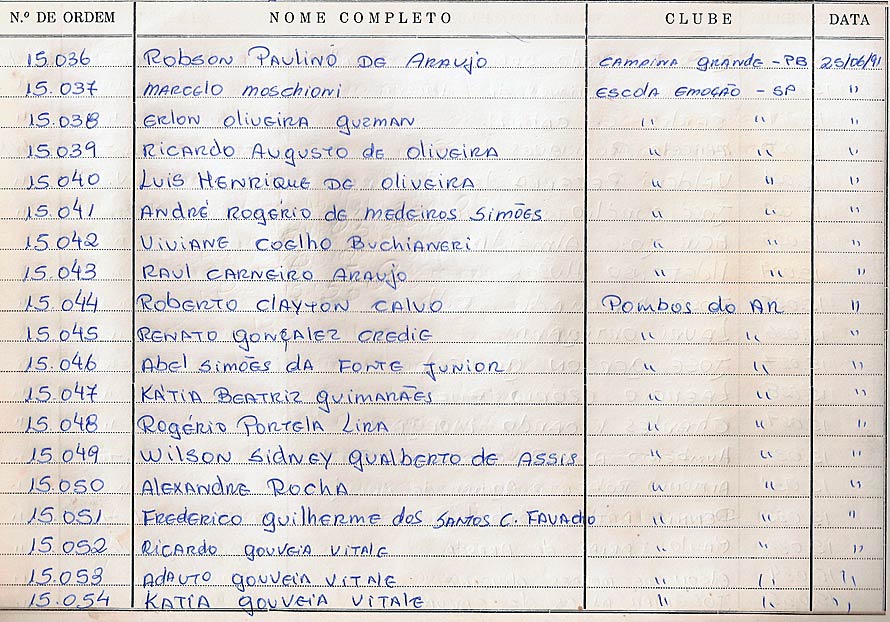 N.º DE ORDEM NOME COMPLETO CLUBE DATA
15.036 Robson Paulino de Araujo Campina Grande - PB 25/06/91
15.037 Marcelo Moschioni Escola Emoção - SP "
15.038 Erlon Oliveira Guzman " " "
15.039 Ricardo Augusto de Oliveira " " "
15.040 Luis Henrique de Oliveira " " "
15.041 André Rogério de Medeiros Simões " " "
15.042 Viviane Coelho Buchianeri " " "
15.043 Raul Carneiro Araujo " " "
15.044 Roberto Clayton Calvo Pombos do Ar "
15.045 Renato Gonçalez Credie " " "
15.046 Abel Simões da Fonte Junior " " "
15.047 Kátia Beatriz Guimarães " " "
15.048 Rogério Portela Lira " " "
15.049 Wilson Sidney Gualberto de Assis " " "
15.050 Alexandre Rocha " " "
15.051 Frederico Guilherme dos Santos C. Favacho " " "
15.052 Ricardo Gouveia Vitale " " "
15.053 Adauto Gouveia Vitale " " "
15.054 Katia Gouveia Vitale " " "